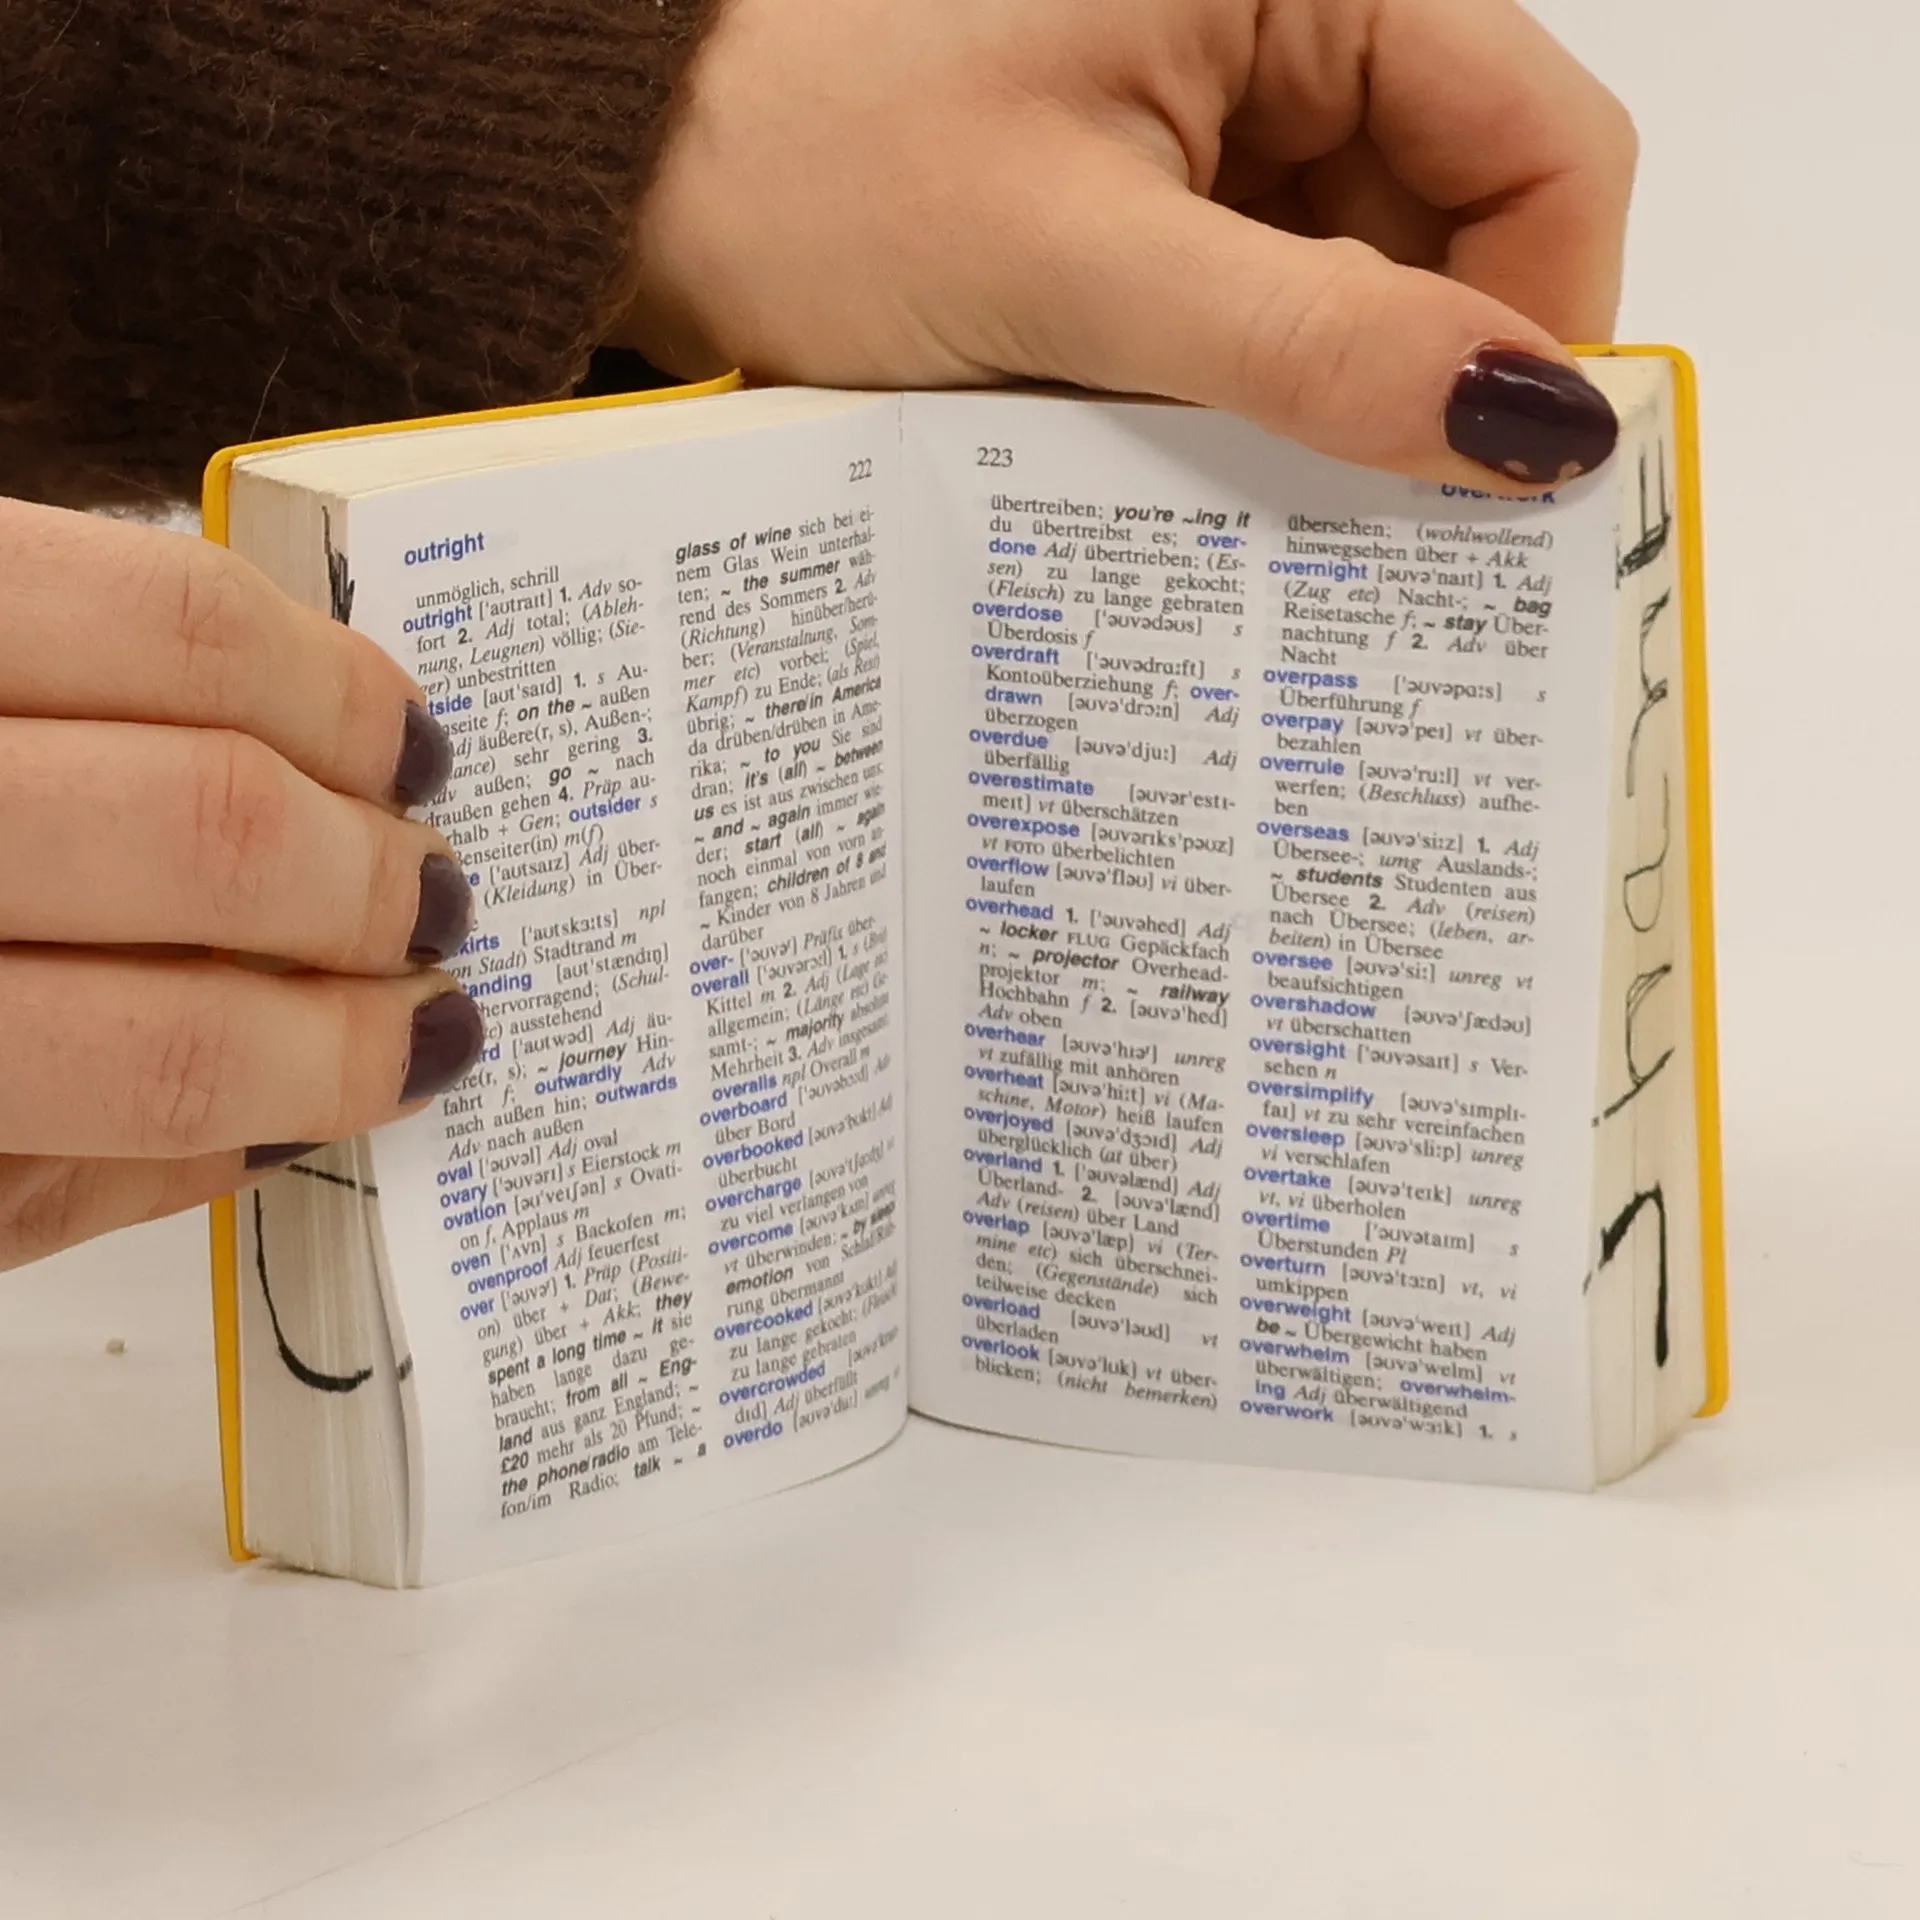 222
outright
unmöglich, schrill
outright ['aʊtraɪt] 1. Adv so-
fort 2. Adj total; (Ableh-
nung, Leugnen) völlig; (Sie-
ger) unbestritten
tside [aʊt'saɪd] 1. s Au-
seite f; on the ~ außen
dj äußere(r, s), Außen-;
ance) sehr gering 3.
Adv außen; go ~ nach
draußen gehen 4. Präp au-
rhalb + Gen; outsider s
ßenseiter(in) m(f)
e ['aʊtsaɪz] Adj über-
(Kleidung) in Über-
e
kirts ['aʊtskɜːts] npl
on Stadt) Stadtrand m
tanding [aʊt'stændɪŋ]
hervorragend; (Schul-
c) ausstehend
rd ['aʊtwəd] Adj äu-
ere(r, s); ~ journey Hin-
fahrt f; outwardly Adv
nach außen hin; outwards
Adv nach außen
oval ['əʊvəl] Adj oval
ovary ['əʊvərɪ] s Eierstock m
ovation [əʊ'veɪʃən] s Ovati-
on f, Applaus m
oven ['ʌvn] s Backofen m;
ovenproof Adj feuerfest
over ['əʊvəʳ] 1. Präp (Positi-
on) über + Dat; (Bewe-
gung) über + Akk; they
spent a long time ~ it sie
haben lange dazu ge-
braucht; from all ~ Eng-
land aus ganz England; ~
£20 mehr als 20 Pfund; ~
the phone/radio am Tele-
fon/im Radio; talk ~ a
glass of wine sich bei ei-
nem Glas Wein unterhal-
ten; ~ the summer wäh-
rend des Sommers 2. Adv
(Richtung) hinüber/herü-
ber; (Veranstaltung, Som-
mer etc) vorbei; (Spiel,
Kampf) zu Ende; (als Rest)
übrig; ~ there/in America
da drüben/drüben in Ame-
rika; ~ to you Sie sind
dran; it's (all) ~ between
us es ist aus zwischen uns;
~ and ~ again immer wie-
der; start (all) ~ again
noch einmal von vorn an-
fangen; children of 8 and
~ Kinder von 8 Jahren und
darüber
over- ['əʊvəʳ] Präfix über-
overall ['əʊvərɔːl] 1. s (Brit)
Kittel m 2. Adj (Lage etc)
allgemein; (Länge etc) Ge-
samt-; ~ majority absolute
Mehrheit 3. Adv insgesamt;
overalls npl Overall m
overboard ['əʊvəbɔːd] Adv
über Bord
overbooked [əʊvə'bʊkt] Adj
überbucht
overcharge [əʊvə'tʃɑːdʒ] vt
zu viel verlangen von
overcome [əʊvə'kʌm] unreg
vt überwinden; ~ by sleep
emotion von Schlaf/Rüh-
rung übermannt
overcooked [əʊvə'kʊkt] Adj
zu lange gekocht; (Fleisch)
zu lange gebraten
overcrowded [əʊvə'kraʊ-
dɪd] Adj überfüllt
overdo [əʊvə'duː] unreg vt
223
overwork
übertreiben; you're ~ing it
du übertreibst es; over-
done Adj übertrieben; (Es-
sen) zu lange gekocht;
(Fleisch) zu lange gebraten
overdose ['əʊvədəʊs] s
Überdosis f
overdraft ['əʊvədrɑːft] s
Kontoüberziehung f; over-
drawn [əʊvə'drɔːn] Adj
überzogen
overdue [əʊvə'djuː] Adj
überfällig
overestimate [əʊvər'estɪ-
meɪt] vt überschätzen
overexpose [əʊvərɪks'pəʊz]
vt FOTO überbelichten
overflow [əʊvə'fləʊ] vi über-
laufen
overhead 1. ['əʊvəhed] Adj
~ locker FLUG Gepäckfach
n; ~ projector Overhead-
projektor m; ~ railway
Hochbahn f 2. [əʊvə'hed]
Adv oben
overhear [əʊvə'hɪəʳ] unreg
vt zufällig mit anhören
overheat [əʊvə'hiːt] vi (Ma-
schine, Motor) heiß laufen
overjoyed [əʊvə'dʒɔɪd] Adj
überglücklich (at über)
overland 1. ['əʊvəlænd] Adj
Überland- 2. [əʊvə'lænd]
Adv (reisen) über Land
overlap [əʊvə'læp] vi (Ter-
mine etc) sich überschnei-
den; (Gegenstände) sich
teilweise decken
overload [əʊvə'ləʊd] vt
überladen
overlook [əʊvə'lʊk] vt über-
blicken; (nicht bemerken)
übersehen; (wohlwollend)
hinwegsehen über + Akk
overnight [əʊvə'naɪt] 1. Adj
(Zug etc) Nacht-; ~ bag
Reisetasche f; ~ stay Über-
nachtung f 2. Adv über
Nacht
overpass ['əʊvəpɑːs] s
Überführung f
overpay [əʊvə'peɪ] vt über-
bezahlen
overrule [əʊvə'ruːl] vt ver-
werfen; (Beschluss) aufhe-
ben
overseas [əʊvə'siːz] 1. Adj
Übersee-; umg Auslands-;
~ students Studenten aus
Übersee 2. Adv (reisen)
nach Übersee; (leben, ar-
beiten) in Übersee
oversee [əʊvə'siː] unreg vt
beaufsichtigen
overshadow [əʊvə'ʃædəʊ]
vt überschatten
oversight ['əʊvəsaɪt] s Ver-
sehen n
oversimplify [əʊvə'sɪmplɪ-
faɪ] vt zu sehr vereinfachen
oversleep [əʊvə'sliːp] unreg
vi verschlafen
overtake [əʊvə'teɪk] unreg
vt, vi überholen
overtime ['əʊvətaɪm] s
Überstunden Pl
overturn [əʊvə'tɜːn] vt, vi
umkippen
overweight [əʊvə'weɪt] Adj
be ~ Übergewicht haben
overwhelm [əʊvə'welm] vt
überwältigen; overwhelm-
ing Adj überwältigend
overwork [əʊvə'wɜːk] 1. s